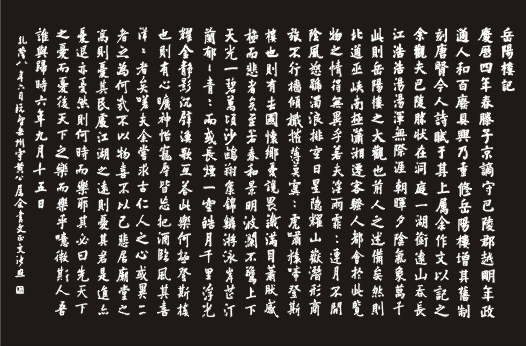 岳陽樓記
慶曆四年春滕子京謫守巴陵郡越明年政
通人和百廢具興乃重修岳陽樓增其舊制
刻唐賢今人詩賦于其上屬余作文以記之
余觀夫巴陵勝狀在洞庭一湖銜遠山吞長
江浩浩蕩蕩渾無際涯朝暉夕陰氣象萬千
此則岳陽樓之大觀也前人之述備矣然則
北通巫峽南極瀟湘遷客騷人都會於此覽
物之情得無異乎若夫淫雨霏霏連月不開
陰風怒號濁浪排空日星隱耀山嶽潛形商
旅不行檣傾楫摧薄暮冥冥虎嘯猿啼登斯
樓也則有去國懷鄉憂讒畏譏滿目蕭然感
極而悲者矣至若春和景明波瀾不驚上下
天光一碧萬頃沙鷗翔集錦鱗游泳岸芷汀
蘭郁郁青青而或長煙一空皓月千里浮光
耀金靜影沉璧漁歌互答此樂何極登斯樓
也則有心曠神怡寵辱皆忘把酒臨風其喜
洋洋者矣嗟夫余嘗求古仁人之心或異二
者之為何哉不以物喜不以己悲居廟堂之
高則憂其民處江湖之遠則憂其君是進亦
憂退亦憂然則何時而樂耶其必曰先天下
之憂而憂後天下之樂而樂乎噫微斯人吾
誰與歸時六年九月十五日